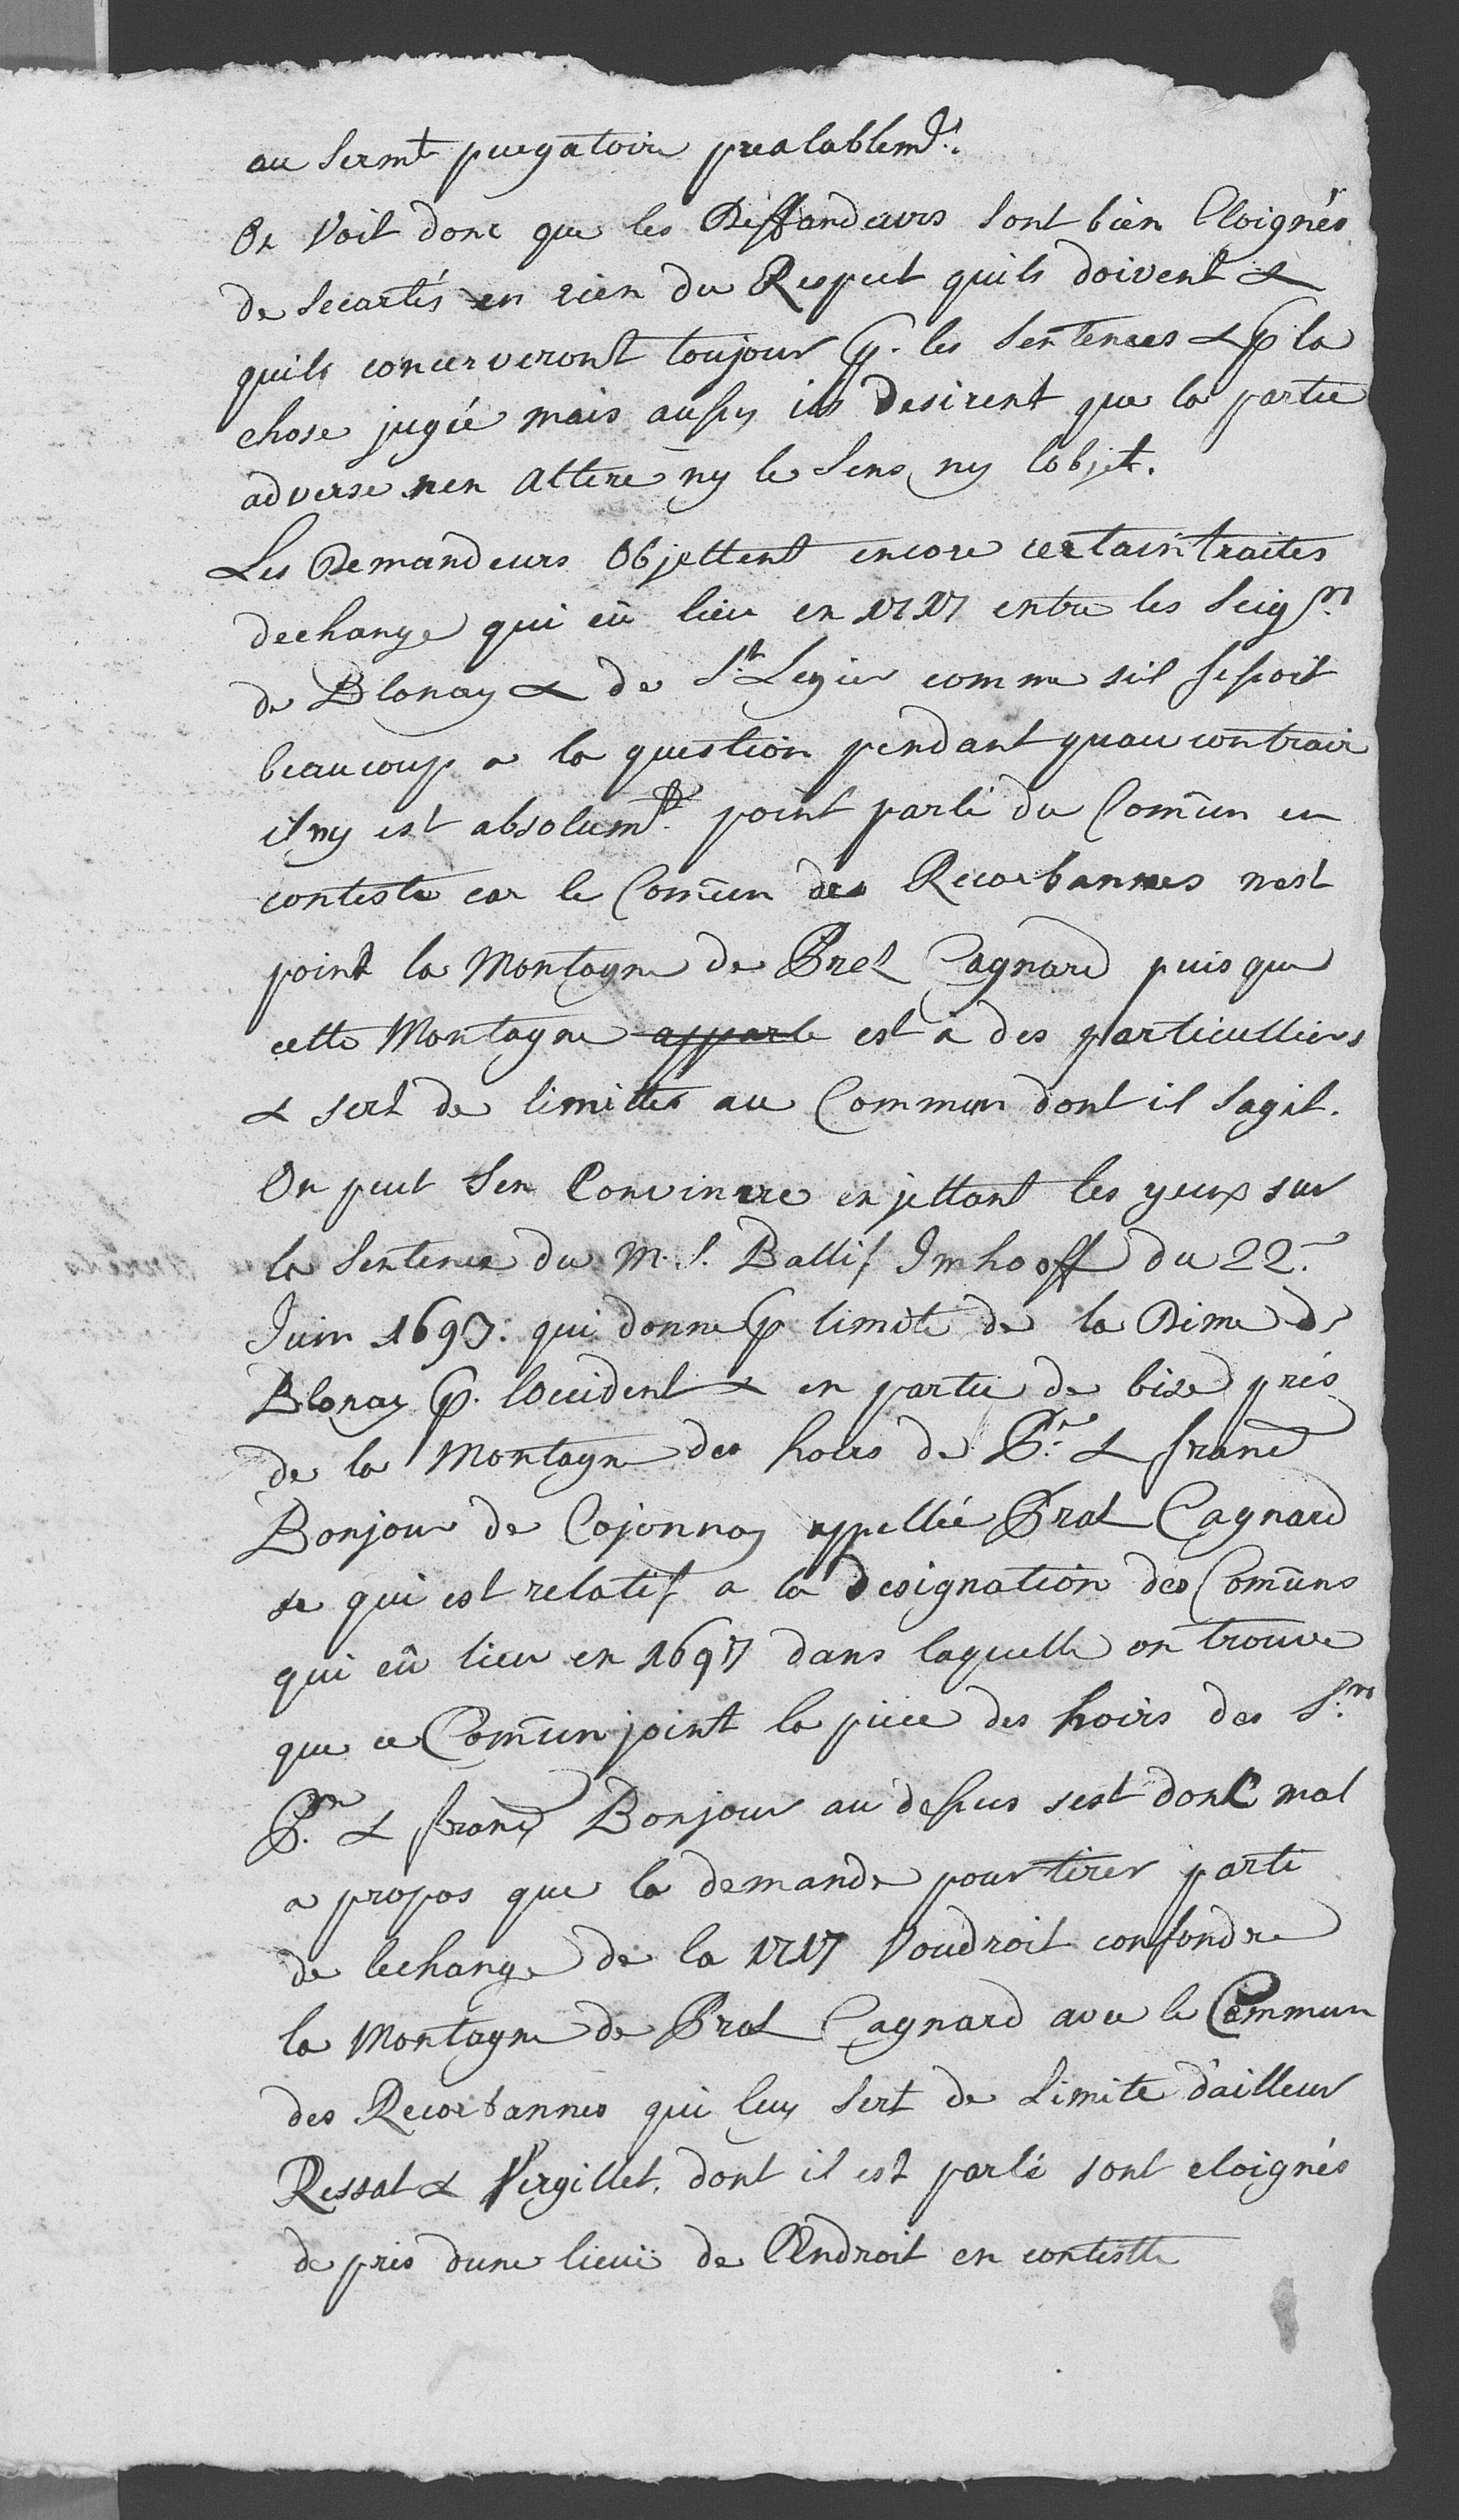 au sermt purgatoire prealablemt.
On Voit donc que les Deffandeurs sont bien Eloignés
de Secartés en rien du Respect quils doivent &
quils concerveront toujour p. les Sentences & p la
chose jugée mais aussy ils desirent que la partie
adverse nen Altere ny le Sens ny lobjet.
Les Demandeurs Objettent encore certain traites
dechange qui eû lieu en 1717 entre les Seigrs
de Blonay & de St. Legier comme sil
beaucoup a la question pendant quau contrair
il ny est absolumt. point parlé du Comūn en
conteste car le Comūn des Recorbannes nest
point la Montagne de Prel Cagnard puis que
cette Montagne apparte est à des particulliers
& sert de limittes au Commun dont il sagit.
On peut Sen Convincre en jettant les yeux sur
la Sentence du M. S. Ballif Imhooff du 22.e
Juin 1697. qui donne p limite de la Dime de
Blonay p. loccident & en partie de bise près
de la Montagne des hoirs de P.re & franc
Bonjour de Cojonnay appellée Prat Cagnard
se qui est relatif a la designation des Comūns
qui eû lieu en 1697 dans laquelle on trouve
que ce Comūn joint la piece des hoirs des S.rs
P.re & franc Bonjour au dessus sest donc mal
a propos que la demande pour tirer parti
de lechange de la 1717 Voudroit confondre
la Montagne de Prat Cagnard avec le Commun
des Recorbannes qui luy Sert de Limite d'ailleur
Ressat & Vergillet. dont il est parlé sont eloignés
de pris dune lieuë de l'Endroit en contestte